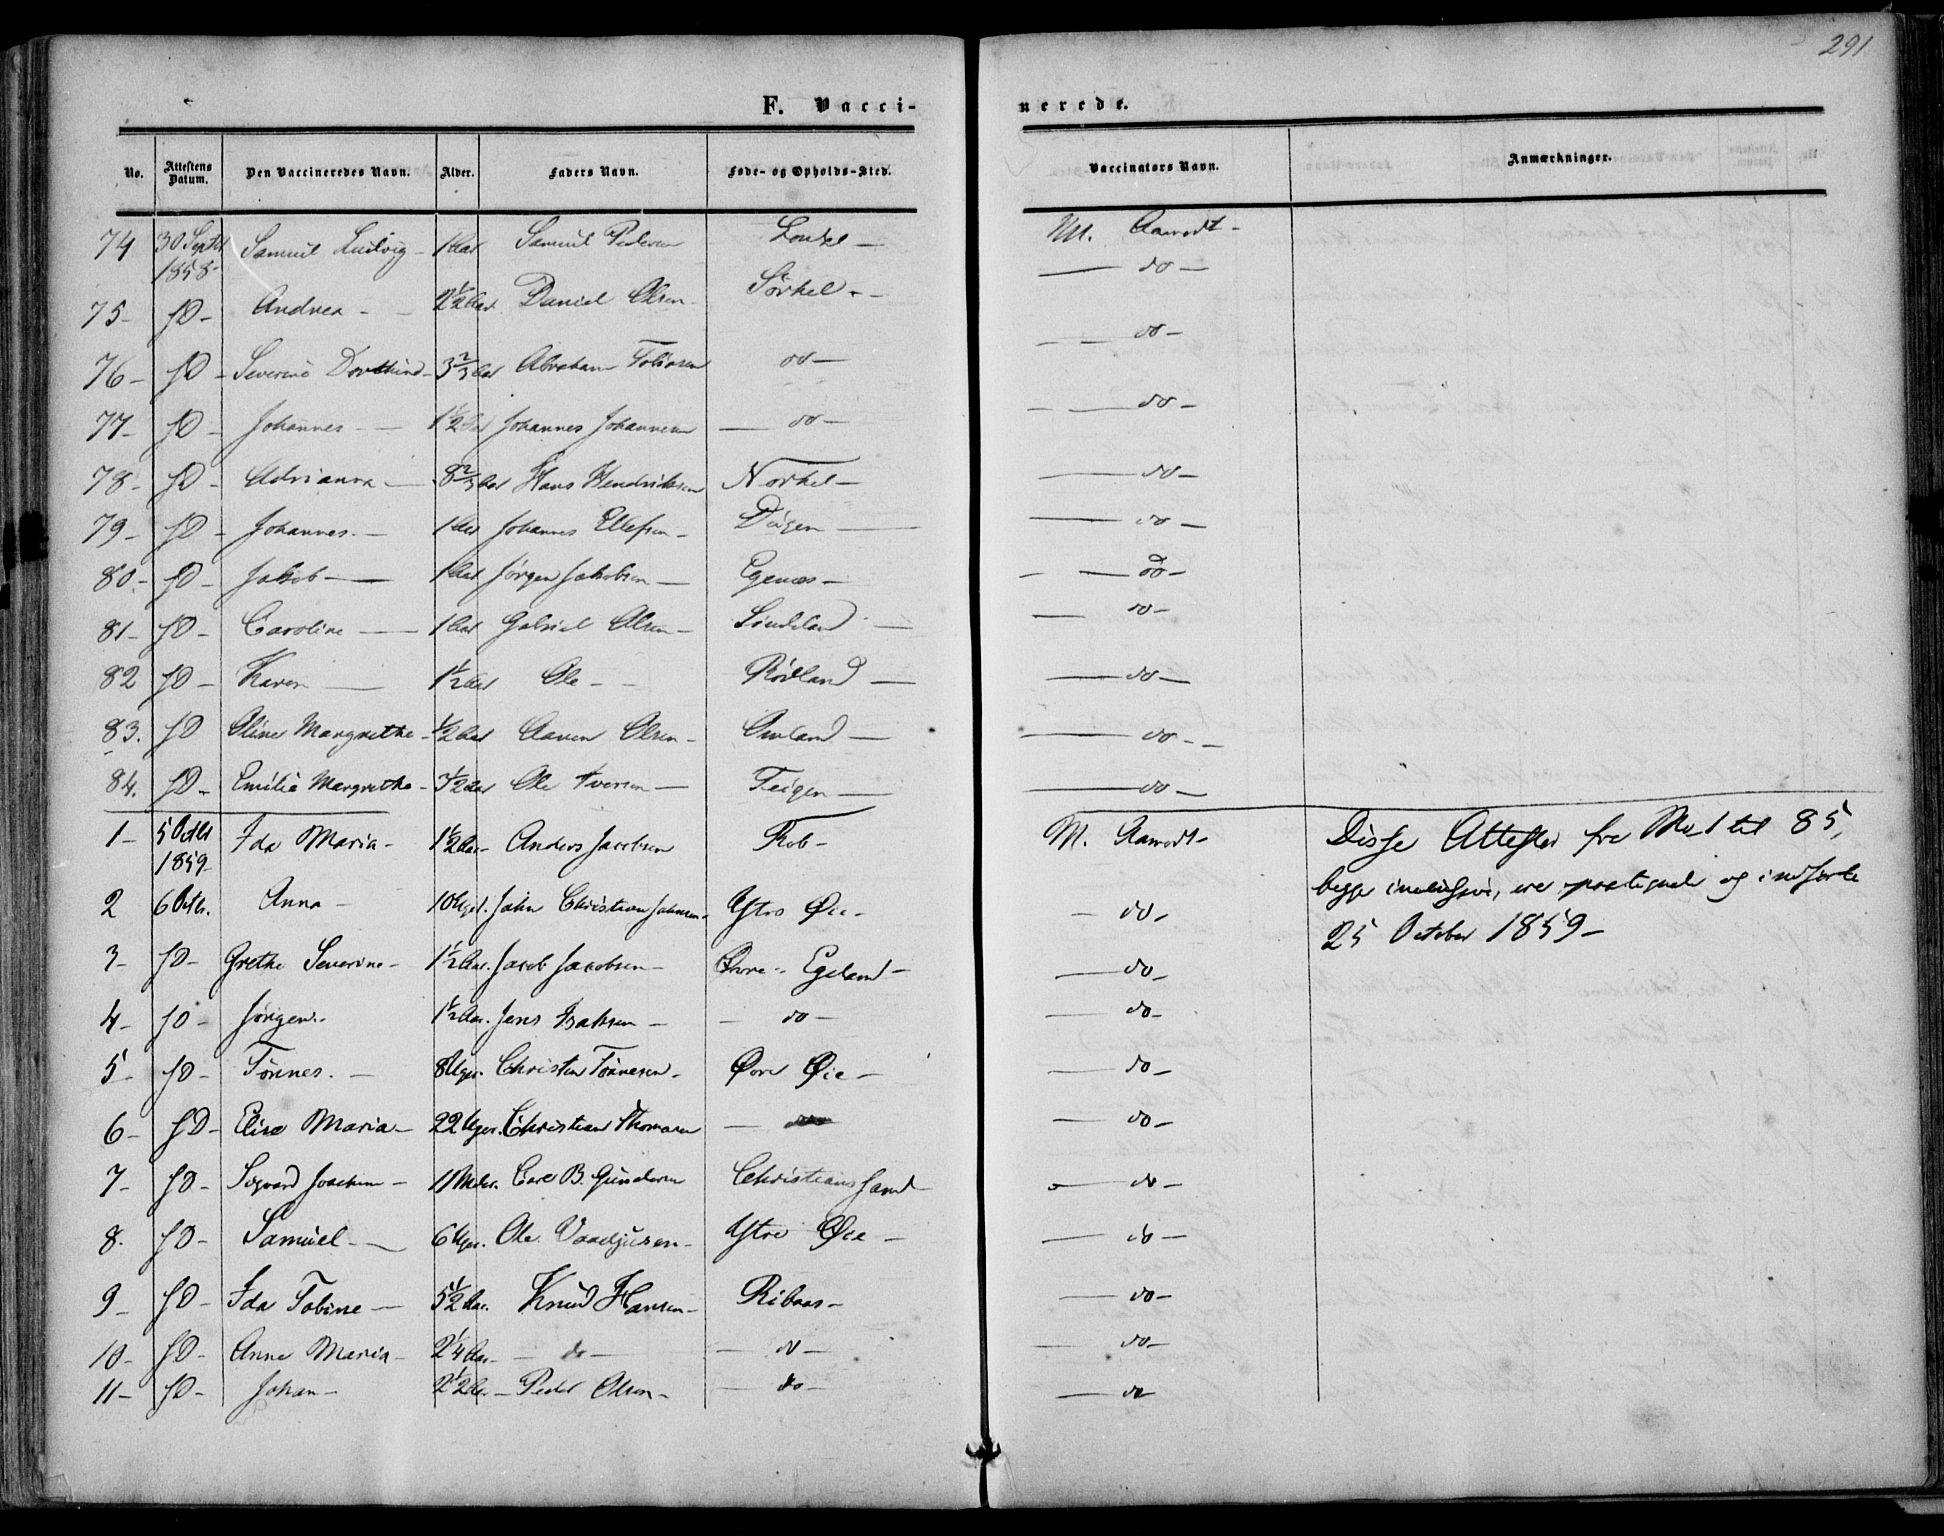 291
F. Vaccinerede.
No. | Attestens Datum. | Den Vaccineredes Navn. | Alder. | Faders Navn. | Føde- og Opholds-Sted. | Vaccinators Navn. | Anmærkninger.
74 | 30 Septbr 1858 | Samuel Ludvig | 1 Aar | Samuel Pedersen | | M. Aamodt
75 | JD | Andrea | 2½ Aar | Daniel Olsen | Sørhel | do
76 | JD | Severine Dorthine | 3⅔ Aar | Abraham Tobiasen | do | do
77 | JD | Johannes | 1½ Aar | Johannes Johannesen | do | do
78 | JD | Adrianna | 8⅔ Aar | Hans Hendriksen | Norhel | do
79 | JD | Johannes | 1 Aar | Johannes Ellefsen | | do
80 | JD | Jakob | 1 Aar | Jørgen Jakobsen | Egenæs | do
81 | JD | Caroline | 1 Aar | Gabriel Olsen | | do
82 | JD | Karen | 1½ Aar | Ole | Rødland | do
83. | JD | Oline Margrethe | ½ Aar | Aanen Olsen | | do
84. | JD | Emilie Margrethe | 3½ Aar | Ole Iversen | Teigen | do
1 | 5 Octbr 1859 | Ida Maria | 1½ Aar | Anders Jacobsen | Rob | M. Aamodt | Disse Attester fra No 1 til 85,
2 | 6 Octbr. | Anna | 10 Uger | John Christian Johnsen | Ytre Øie | do | begge inclusive, ere og indførte
3 | JD | Grethe Severine | 1½ Aar. | Jacob Jacobsen | Øvre Egeland | do | 25 October 1859
4 | JD | Jørgen | 1½ Aar. | Jens Isaksen | do | do
5 | JD | Tønnes. | 8 Uger. | Christen Tønnesen | Øvre Øie | do
6 | JD | Elise Maria | 22 Uger. | Christian Thomasen | do | do
7 | JD | Sigvard Joachim | 11 Mdr. | Carl B. Gundersen | Christianssand | do
8. | JD | Samuel | 6 Uger. | Ole | Ytre Øie | do
9 | JD | Ida Tobine | 5½ Aar. | Knud Hansen | Ribaas | do
10 | JD | Anne Maria | 2¼ Aar. | do | do | do
11 | JD | Johan | 2½ Aar | Peder Olsen | do | do